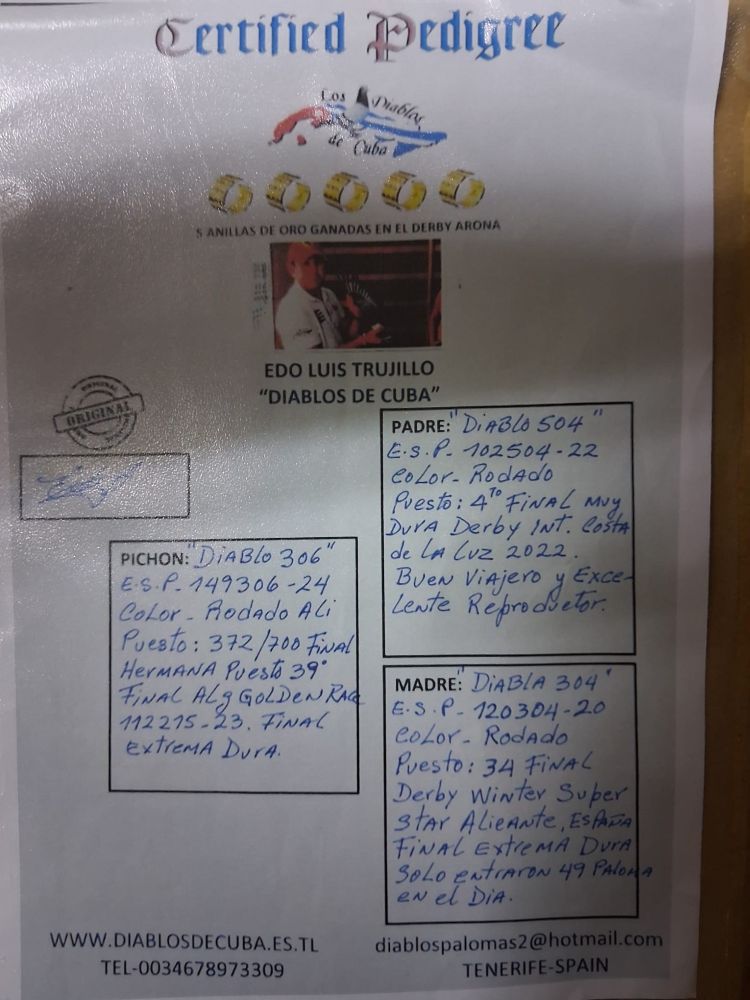 Certified Pedigree
Los Diablos
de Cuba
5 ANILLAS DE ORO GANADAS EN EL DERBY ARONA
EDO LUIS TRUJILLO
“DIABLOS DE CUBA”
ORIGINAL
ORIGINAL
PADRE: "DiABLO 504"
E.S.P- 102504-22
COLOR- RODADO
Puesto: 4TO FINAL MUY
DURA Derby INT. Costa
de LA Luz 2022.
Buen Viajero y Exce-
Lente Reproductor.
PICHON: "DiABLO 306"
E.S.P- 149306-24
COLOR- RODADO ALi
Puesto: 372/700 FiNAL
HERMANA Puesto 39°
FiNAL ALg GOLDEN RACE
112215-23. FINAL
EXTREMA DURA.
MADRE: "DiABLA 304"
E.S.P- 120304-20
COLOR- RODADO
Puesto: 34 FINAL
Derby Winter Super
Star ALicANte, ESPAÑA
FiNAL EXtreMA DURA
SOLO entrARON 49 PALOMA
en el DiA.
WWW.DIABLOSDECUBA.ES.TL
TEL-0034678973309
diablospalomas2@hotmail.com
TENERIFE-SPAIN